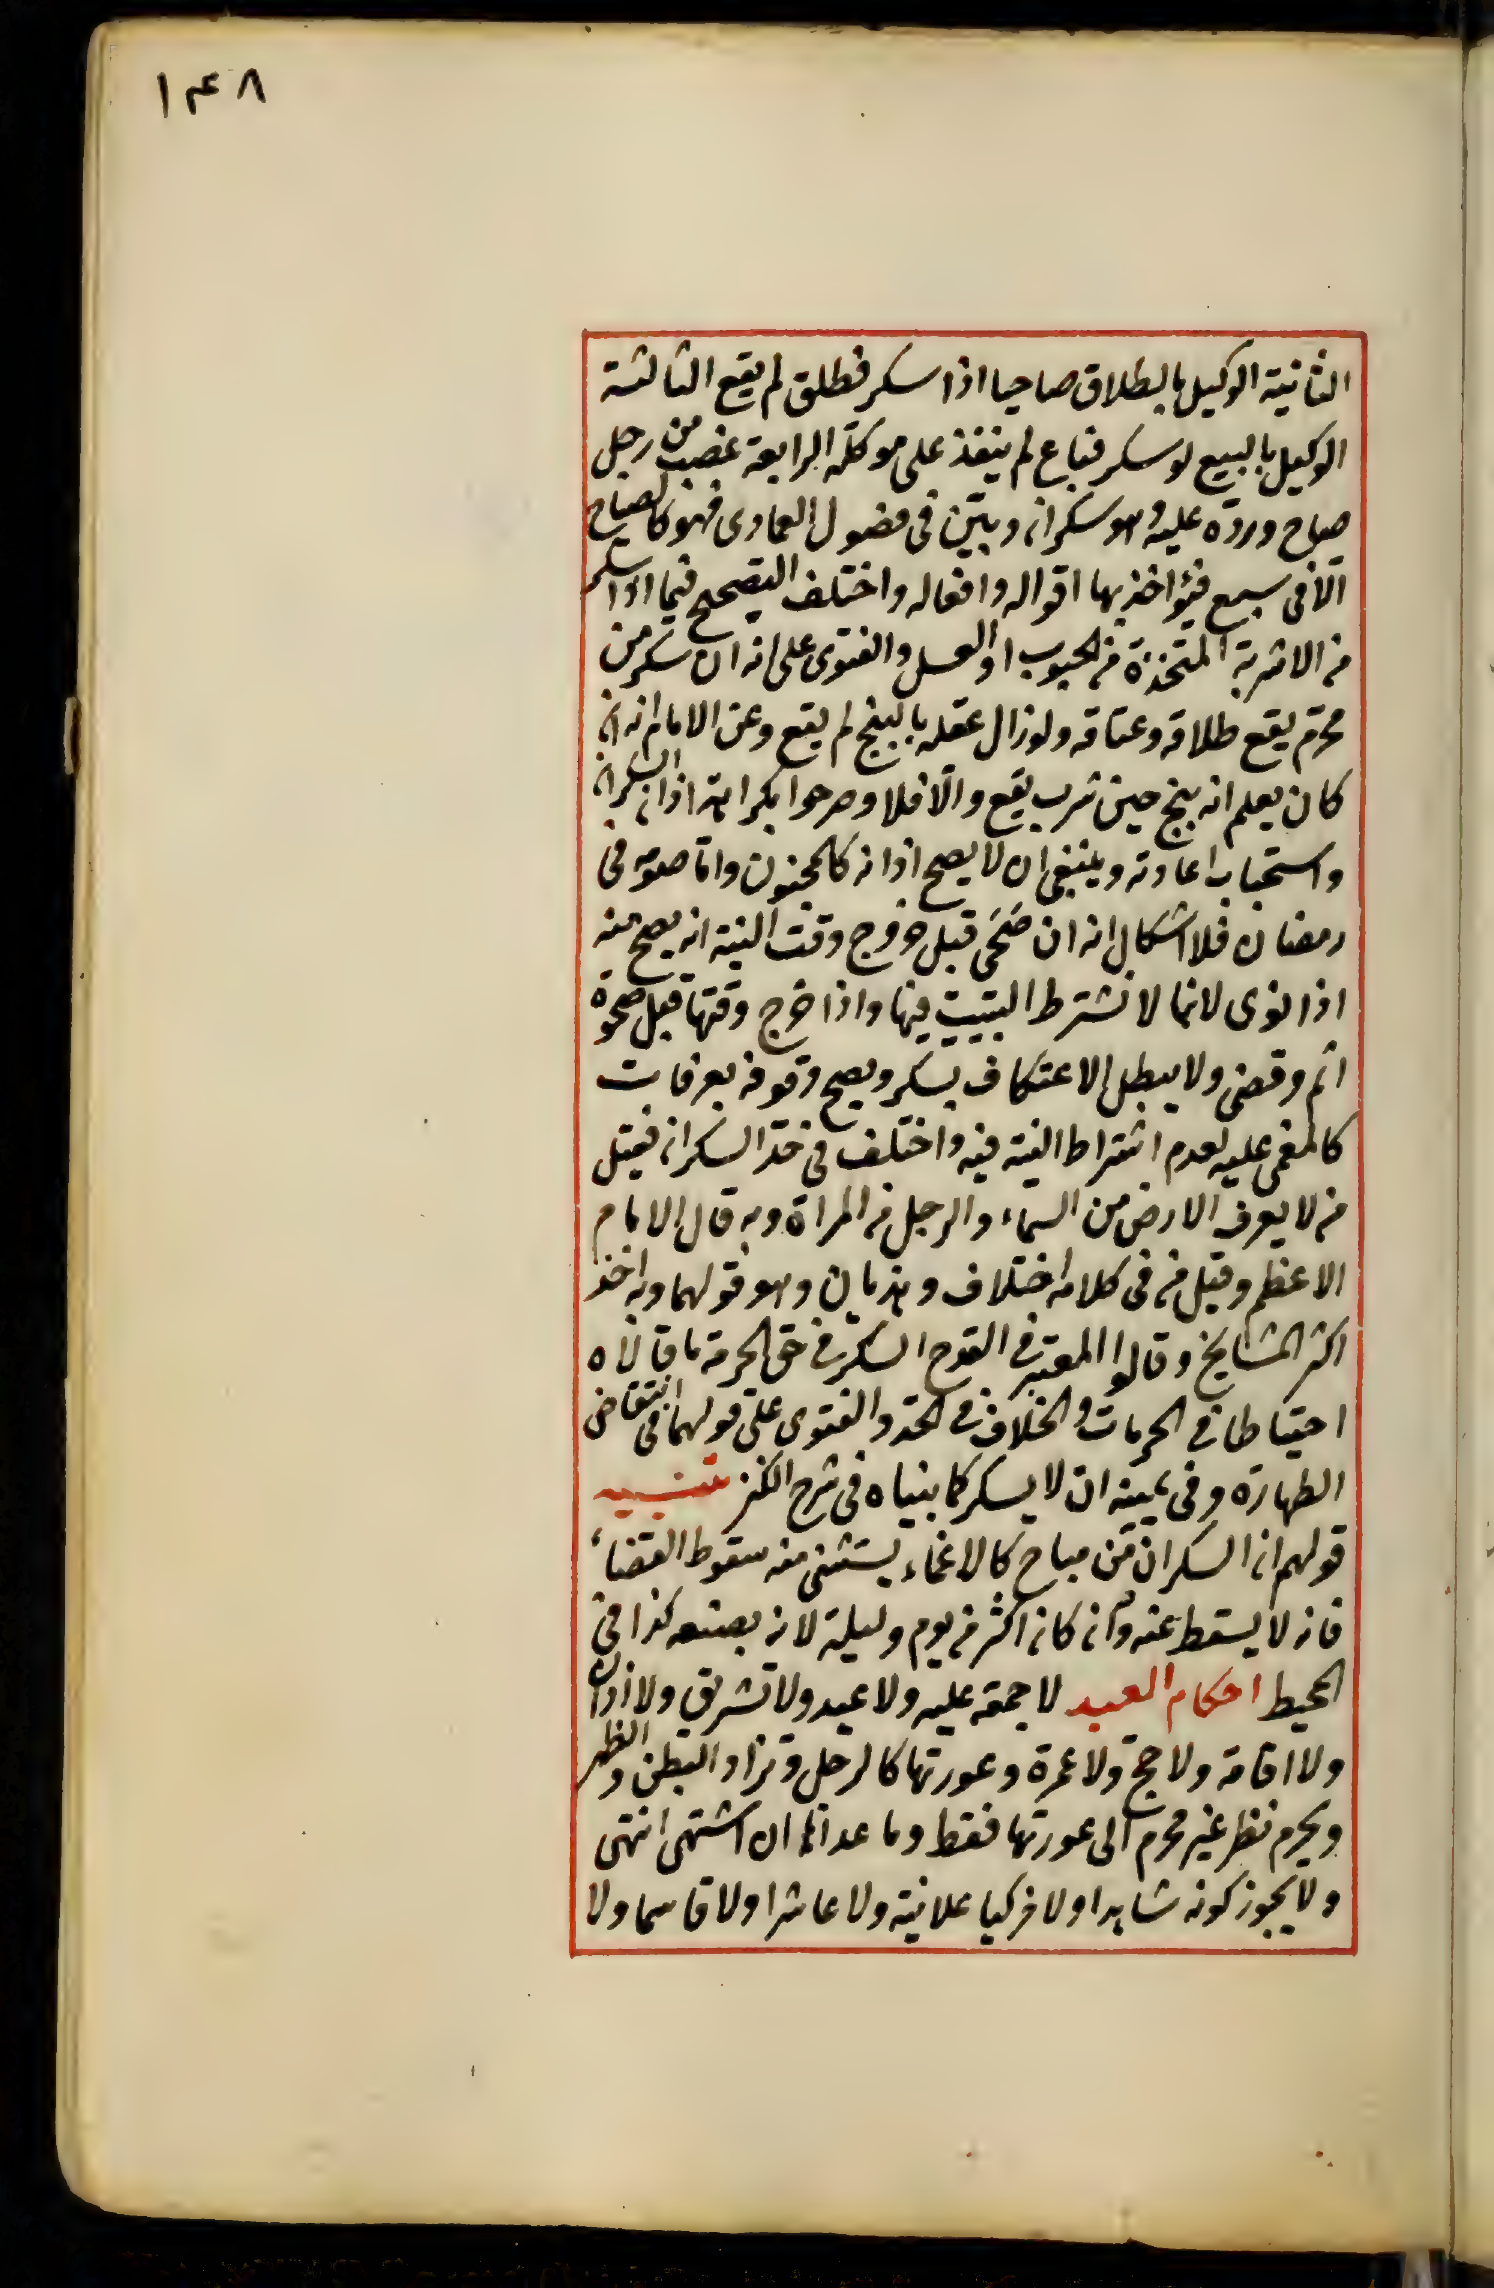 ١٤٨
الثانية الوكيل بالطلاق صاحيا اذا سكر فطلق لم يقع الثالثة
الوكيل بالبيع لو سكر فباع لم ينفذ على موكله الرابعة غصب من رجل
صاح ورده عليه وهو سكران وبين في فصول العمادى فهو كالصاح
الا في سبع فيؤاخذ بها اقواله وافعاله واختلف التصحيح فيما اذا سكر
من الاشربة المتخذة من الحبوب او العسل والفتوى على انه ان سكر من
محرم يقع طلاقه وعتاقه ولو زال عقله بالبنج لم يقع وعن الامام انه ان
كان يعلم انه بنج حين شرب يقع والا فلا وصرحوا بكراهة اذان السكران
واستحباب اعادته وينبغي ان لا يصح اذانه كالمجنون واما صومه في
رمضان فلا اشكال انه ان صحى قبل خروج وقت النية انه يصح منه
اذا نوى لانا لا نشترط التبييت فيها واذا خرج وقتها قبل صحوه
اثم وقضى ولا يبطل الاعتكاف بسكر ويصح وقوفه بعرفات
كالمغمى عليه لعدم اشتراط النية فيه واختلف في حد السكران فقيل
من لا يعرف الارض من السماء والرجل من المراة وبه قال الامام
الاعظم وقيل من في كلامه اختلاف وهذيان وهو قولهما وبه اخذ
اكثر المشايخ وقالوا المعتبر في القدح السكر في حق الحرمة ما قالاه
احتياطا في الحرمات والخلاف في الحد والفتوى على قولهما في انتقاض
الطهارة وفي يمينه ان لا يسكر كما بيناه في شرح الكنز تنبيه
قولهم ان السكران من مباح كالاغماء يستثنى منه سقوط القضاء
فانه لا يسقط عنه وان كان اكثر من يوم وليلة لانه بصنعه كذا في
المحيط احكام العبيد لا جمعة عليه ولا عيد ولا تشريق ولا اذان
ولا اقامة ولا حج ولا عمرة وعورتها كالرجل وتزاد البطن والظهر
ويحرم نظر غير محرم الى عورتها فقط وما عداها ان اشتهى انتهى
ولا يجوز كونه شاهدا ولا مزكيا علانية ولا عاشرا ولا قاسما ولا